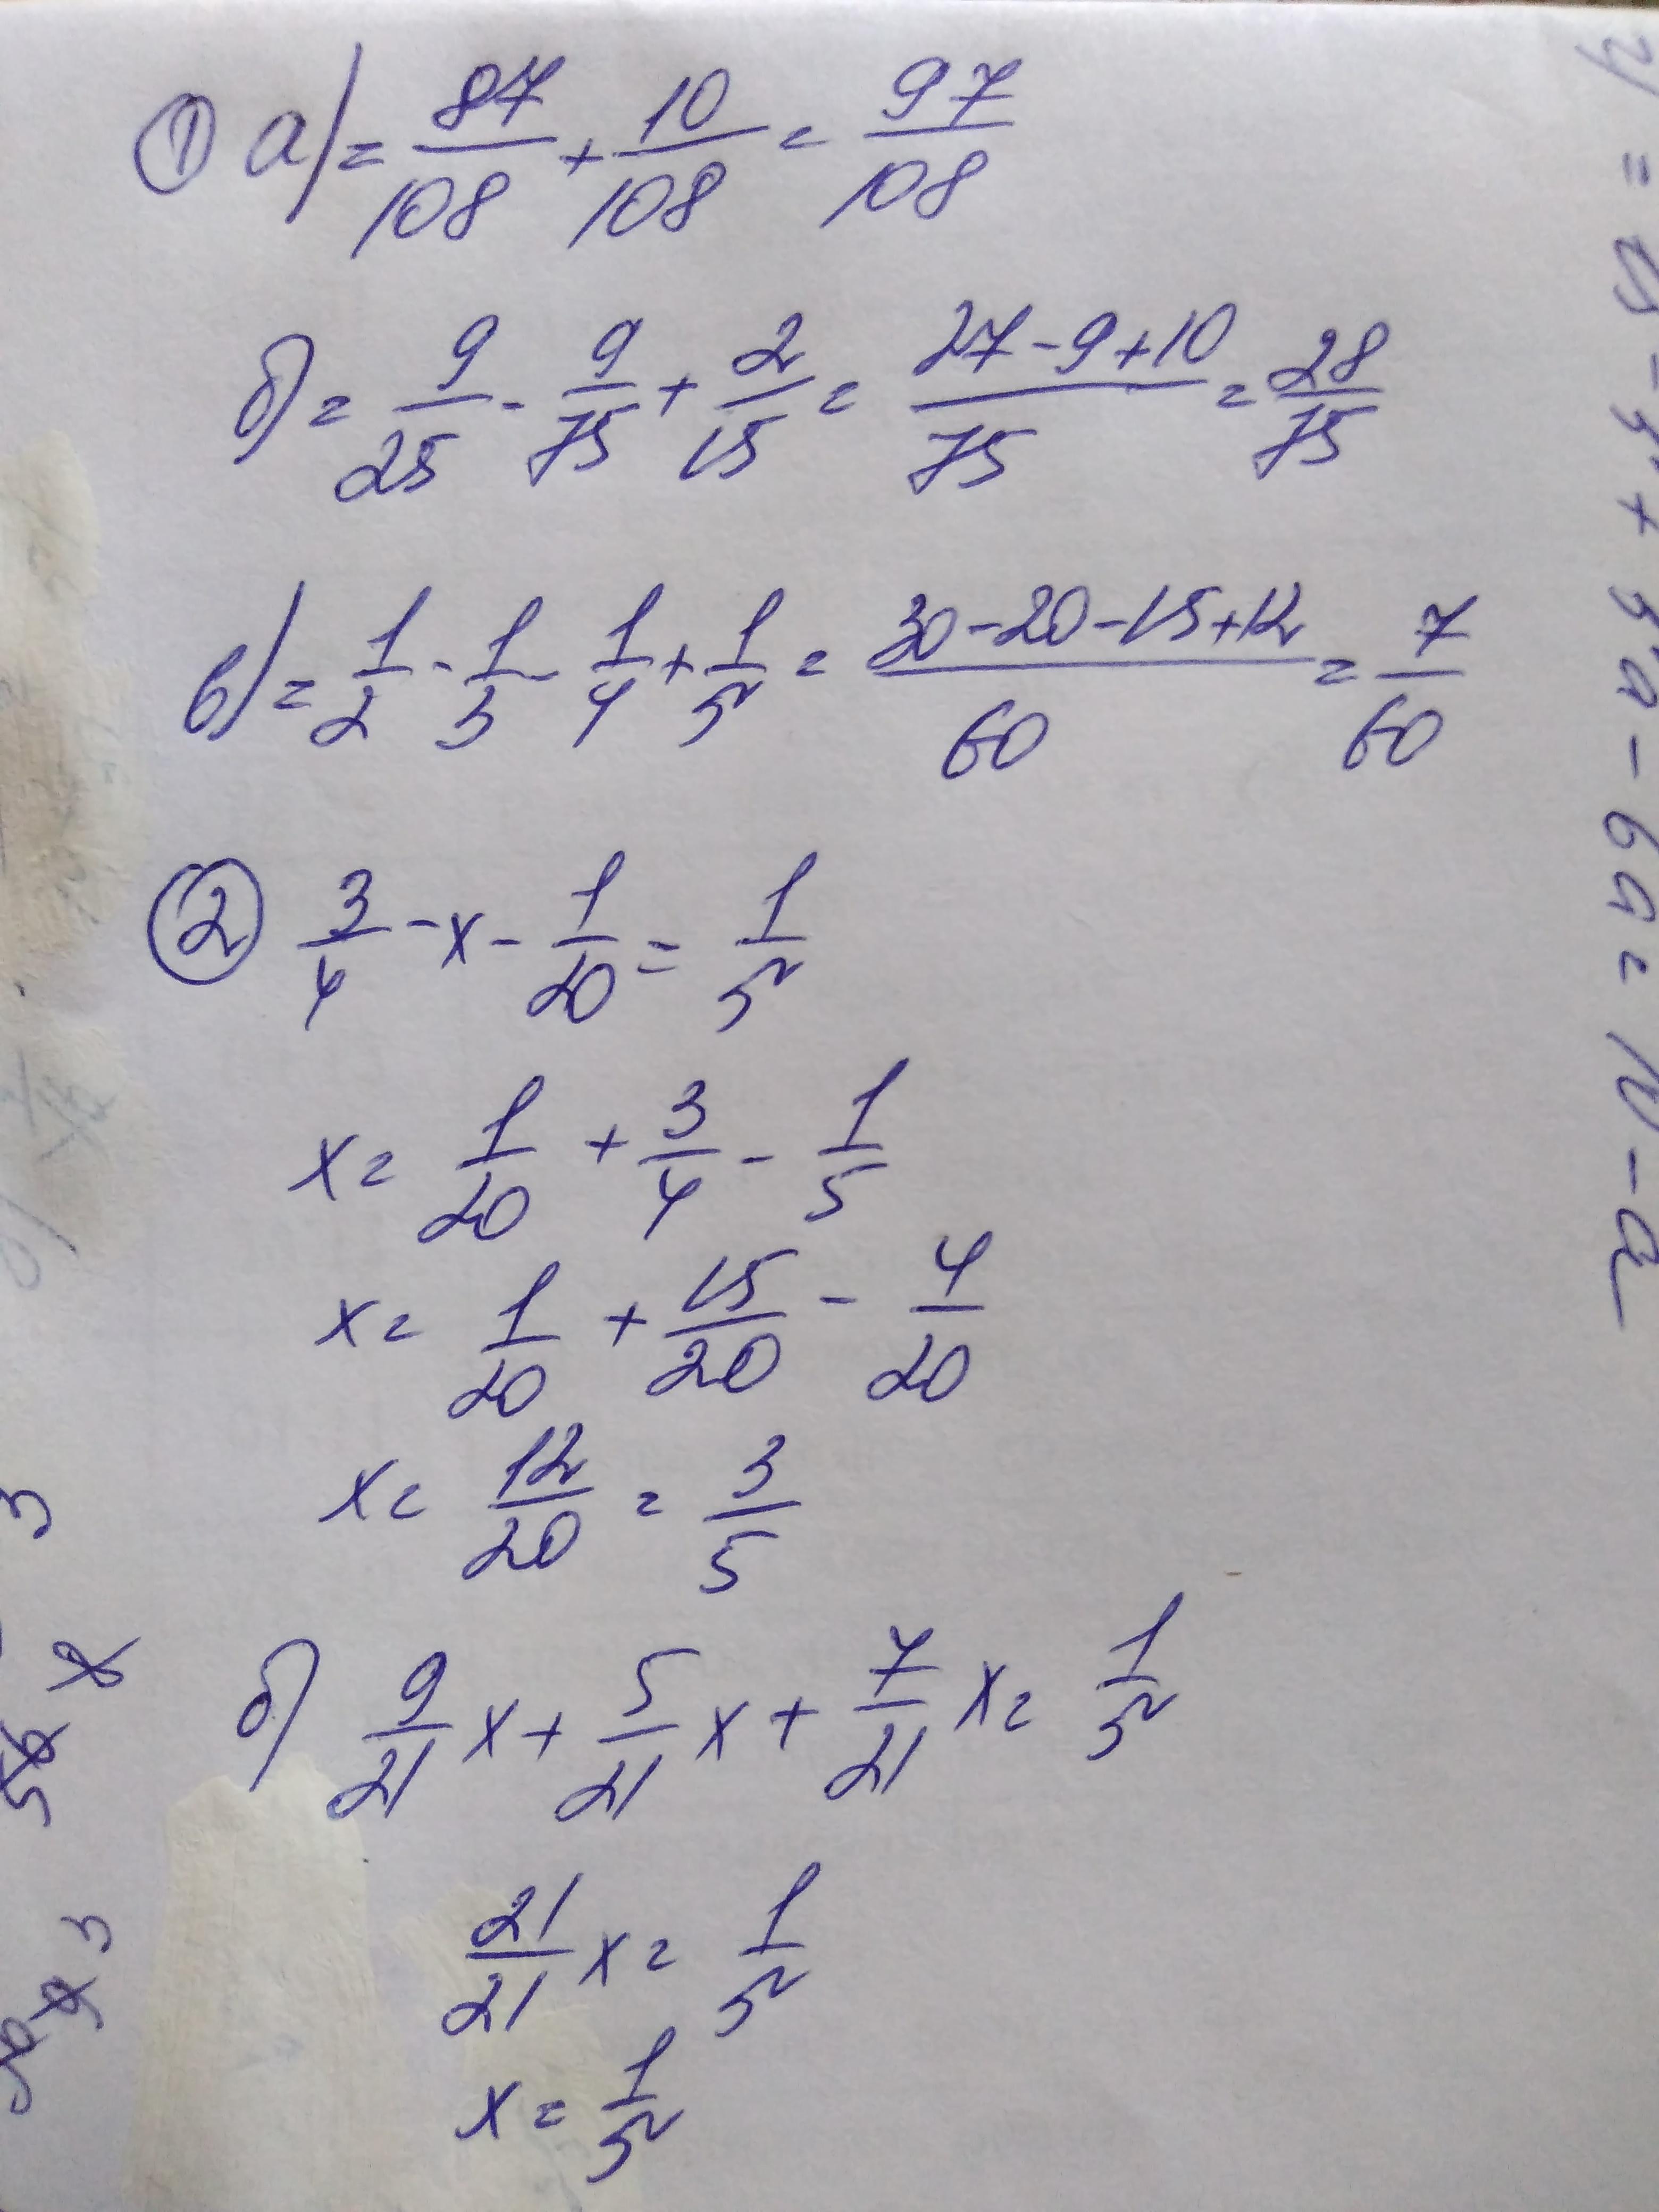 ① а) = 87/108 + 10/108 = 97/108
б) = 9/25 - 9/75 + 2/15 = (27-9+10)/75 = 28/75
в) = 1/2 - 1/3 - 1/4 + 1/5 = (30-20-15+12)/60 = 7/60
② 3/4 - x - 1/20 = 1/5
x = 1/20 + 3/4 - 1/5
x = 1/20 + 15/20 - 4/20
x = 12/20 = 3/5
б) 9/21 x + 5/21 x + 7/21 x = 1/5
21/21 x = 1/5
x = 1/5